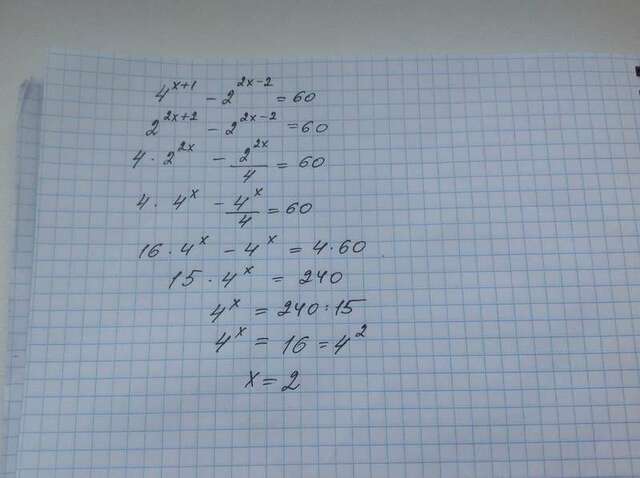 4^{x+1} - 2^{2x-2} = 60
2^{2x+2} - 2^{2x-2} = 60
4 · 2^{2x} - \frac{2^{2x}}{4} = 60
4 · 4^x - \frac{4^x}{4} = 60
16 · 4^x - 4^x = 4·60
15 · 4^x = 240
4^x = 240 : 15
4^x = 16 = 4^2
x = 2